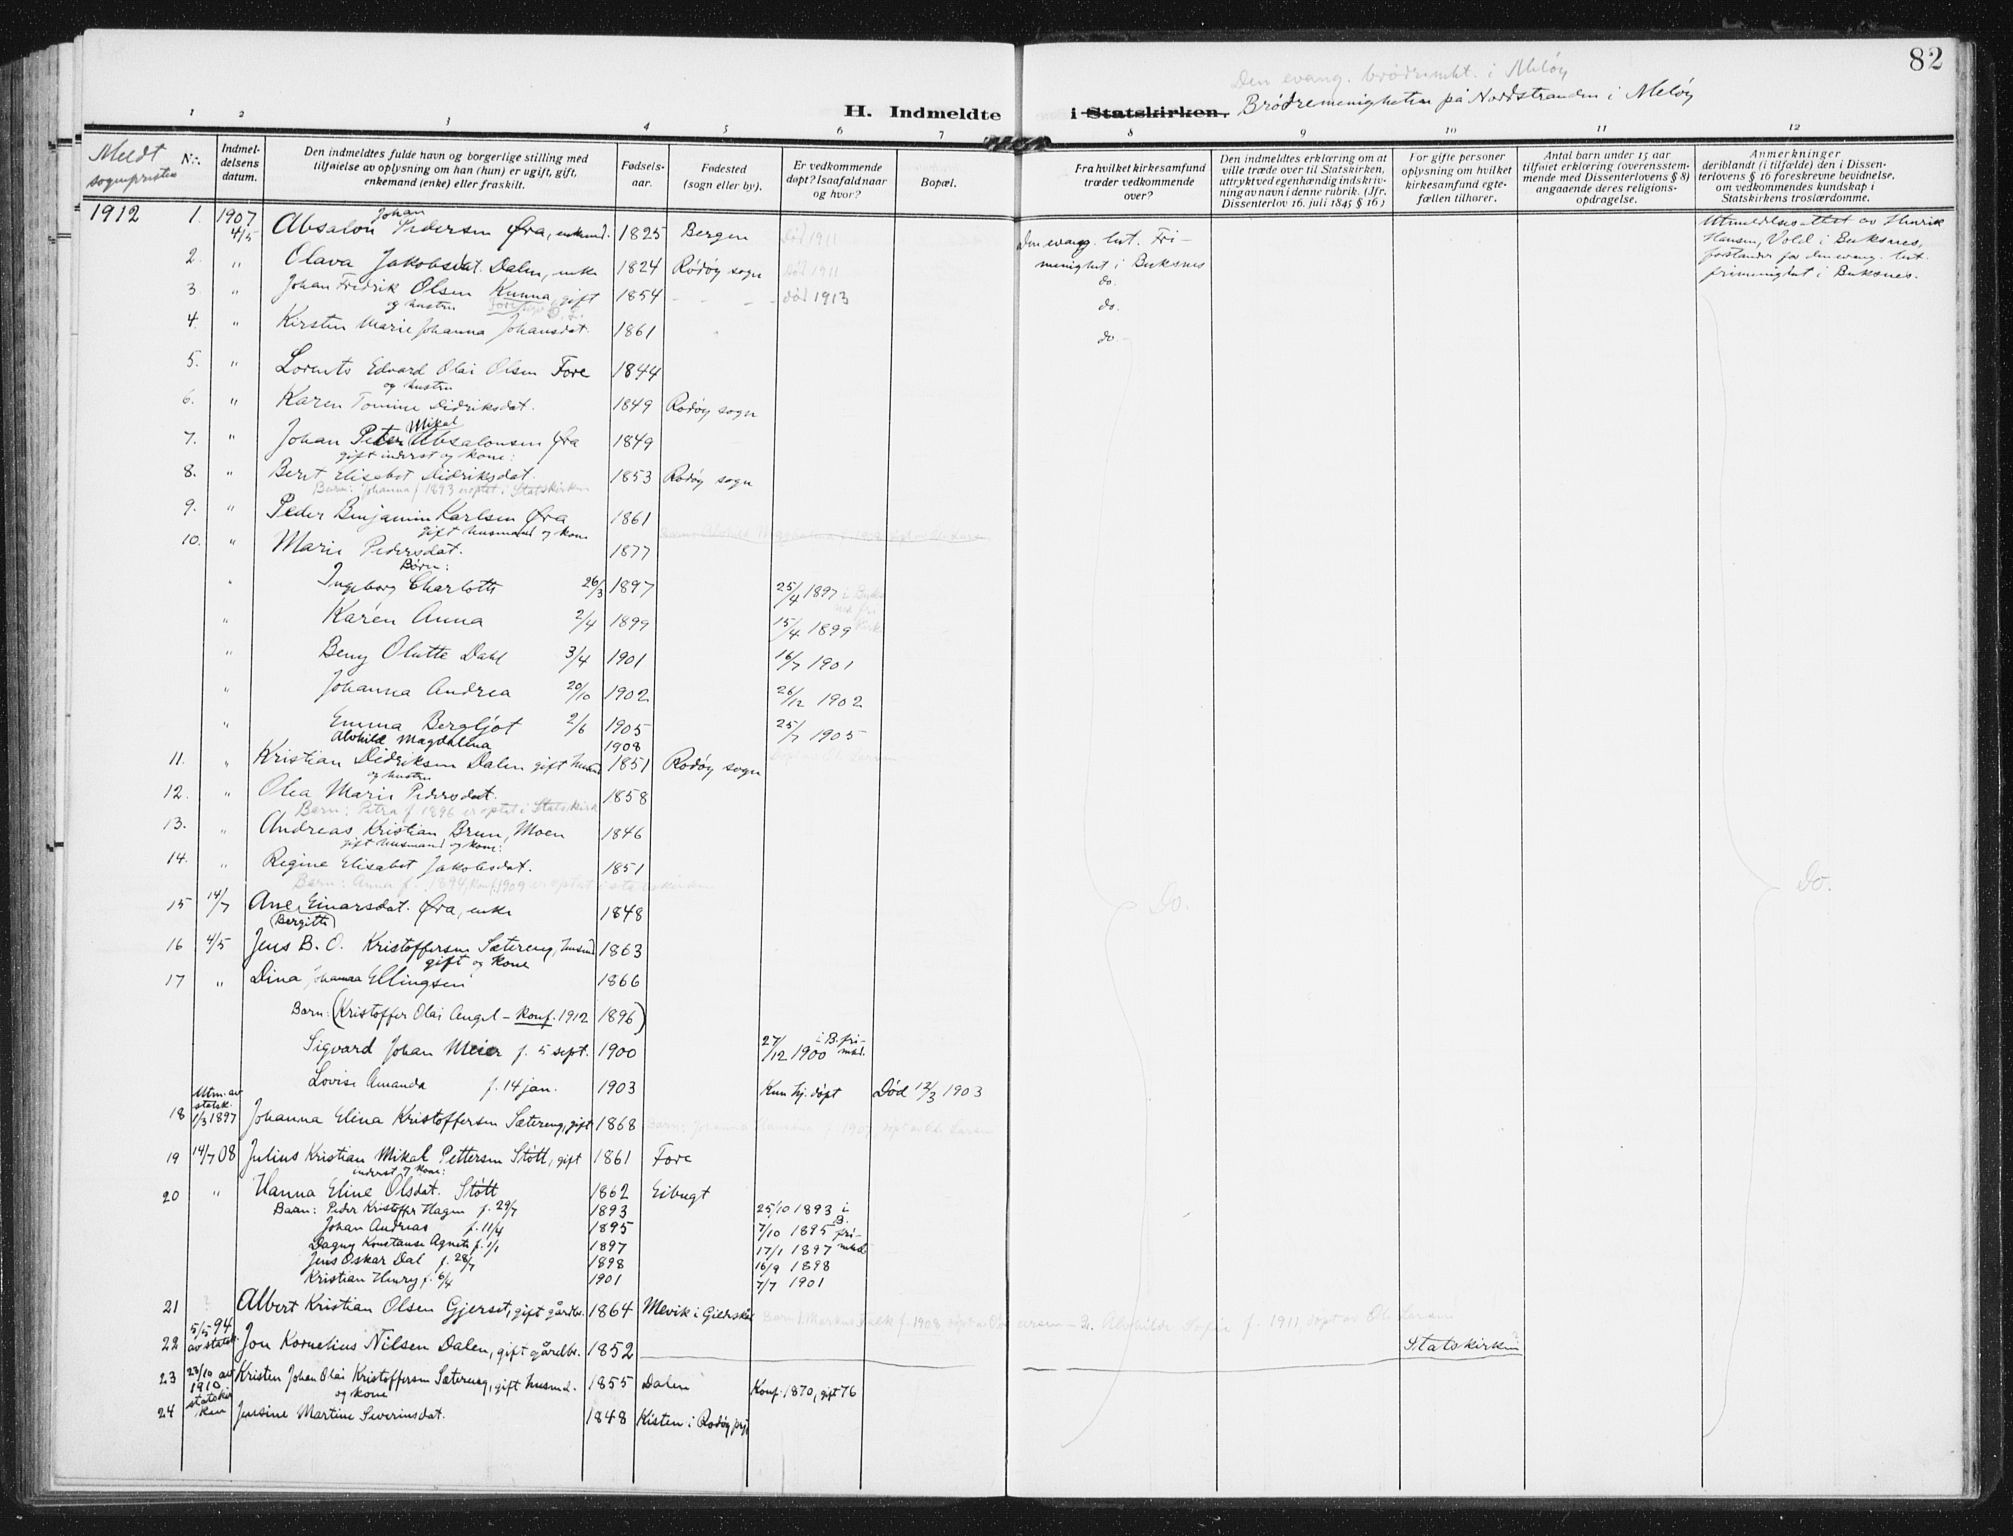 82
Den evang. brødremht. i Meløy
H. Indmeldte i Statskirken. Brødremenigheten på Nordstranden i Meløy
1 2 3 4 5 6 7 8 9 10 11 12
Meldt sognepresten
Nr.
Indmeldelsens datum.
Den indmeldtes fulde navn og borgerlige stilling med tilføielse av oplysning om han (hun) er ugift, gift, enkemand (enke) eller fraskilt.
Fødselsaar.
Fødested (sogn eller by).
Er vedkommende døpt? Isaafald naar og hvor?
Bopæl.
Fra hvilket kirkesamfund træder vedkommende over?
Den indmeldtes erklæring om at ville træde over til Statskirken, uttrykt ved egenhændig indskrivning av navn i denne rubrik. (Jfr. Dissenterlov 16. juli 1845 § 16.)
For gifte personer oplysning om hvilket kirkesamfund egtefællen tilhører.
Antal barn under 15 aar tilføiet erklæring (overensstemmende med Dissenterlovens § 8) angaaende deres religionsopdragelse.
Anmerkninger deriblandt (i tilfælde) den i Dissenterlovens § 16 foreskrevne bevidnelse, om vedkommendes kundskap i Statskirkens troslærdomme.
1912 1. 1907 4/5 Absalon Johan Pedersen Øra, enkemd. 1825 Bergen død 1911 Den evang. lut. Frimenighet i Buksnes Utmeldelsesattest av Henrik Hansen, Vold i Buksnes, forstander for den evang. lut. frimenighet i Buksnes.
2. " Olava Jakobsdat. Dalen, enke 1824 Rødøy sogn død 1911 do.
3. " Johan Fredrik Olsen Kunna, gift 1854 - - - død 1913 do.
og hustru
4. " Kirsten Marie Johanna Johansdat. 1861 " do.
5. " Lorents Edvard Olai Olsen Fore 1844
og hustru
6. " Karen Tomine Didriksdat. 1849 Rødøy sogn
7. " Johan Peter Mikal Absalonsen Øra 1849
gift inderst og kone:
8. " Berit Elisabet Didriksdat. 1853 Rødøy sogn
Barn: Johanna f. 1893 er optet i Statskirken
9. " Peder Benjamin Karlsen Øra 1861
gift husmand og kone
10. " Marie Pedersdat. 1877
Børn:
" Ingeborg Charlotte 26/3 1897 25/4 1897 i Buksnes frikirke
" Karen Anna 2/4 1899 15/4 1899
" Beny Olutte Dahl 3/4 1901 16/7 1901
" Johanna Andrea 20/10 1902 26/12 1902
" Emma Bergljot 2/6 1905 25/7 1905
Alvhild Magdalena 1908
11. " Kristian Didriksen Dalen gift husmd 1851 Rødøy sogn
og hustru
12. " Olea Marie Pedersdat. 1858
Barn: Petra f. 1896 er optet i Statskirk
13. " Andreas Kristian Brun, Moen 1846
gift husmand og kone:
14. " Regine Elisabet Jakobsdat. 1851
Barn: Anna f. 1894, konf. 1909 er optet i statskirken
15 14/7 Ane Einarsdat. Øra, enke 1848 Do. Do.
(Bergitte)
16 4/5 Jens B. O. Kristoffersen Sætereng, husmd 1863
gift og kone
17 " Dina Johanna Ellingsen 1866
Barn: (Kristoffer Olai Angel – konf. 1912 1896)
Sigvard Johan Meier f. 5 sept. 1900 27/12 1900 i B. frimkd.
Lovise Amanda f. 14 jan. 1903 Kun hj. døpt Død 12/3 1903
18 Utm. av statsk. 1/3 1897 Johanna Elina Kristoffersen Sætereng, gift 1868
19 14/7 08 Julius Kristian Mikal Pettersen Støtt, gift 1861 Fore
inderst og kone:
20 " Hanna Eline Olsdat. Støtt 1862 Eibugt
Barn: Peder Kristoffer Hagen f. 29/7 1893 25/10 1893 i B. frimkd.
Johan Andreas f. 11/4 1895 7/10 1895
Dagny Konstanse Agnete f. 1/1 1897 17/1 1897
Jens Oskar Dal f. 28/7 1898 16/9 1898
Kristian Henry f. 6/4 1901 7/7 1901
21 ? Albert Kristian Olsen Gjerset, gift gårdbr. 1864 Mevik i Gilderskål
22 5/5 94 av statsk. Jon Kornelius Nilsen Dalen, gift gårdbr. 1852 Statskirken ?
23 23/10 1910 av statskirken Kristen Johan Olai Kristoffersen Sætereng, gift husmd. 1855 Dalen Konf. 1870, gift 76
og kone
24 Jensine Martine Severinsdat. 1848 Kisten i Rødøy prgj.